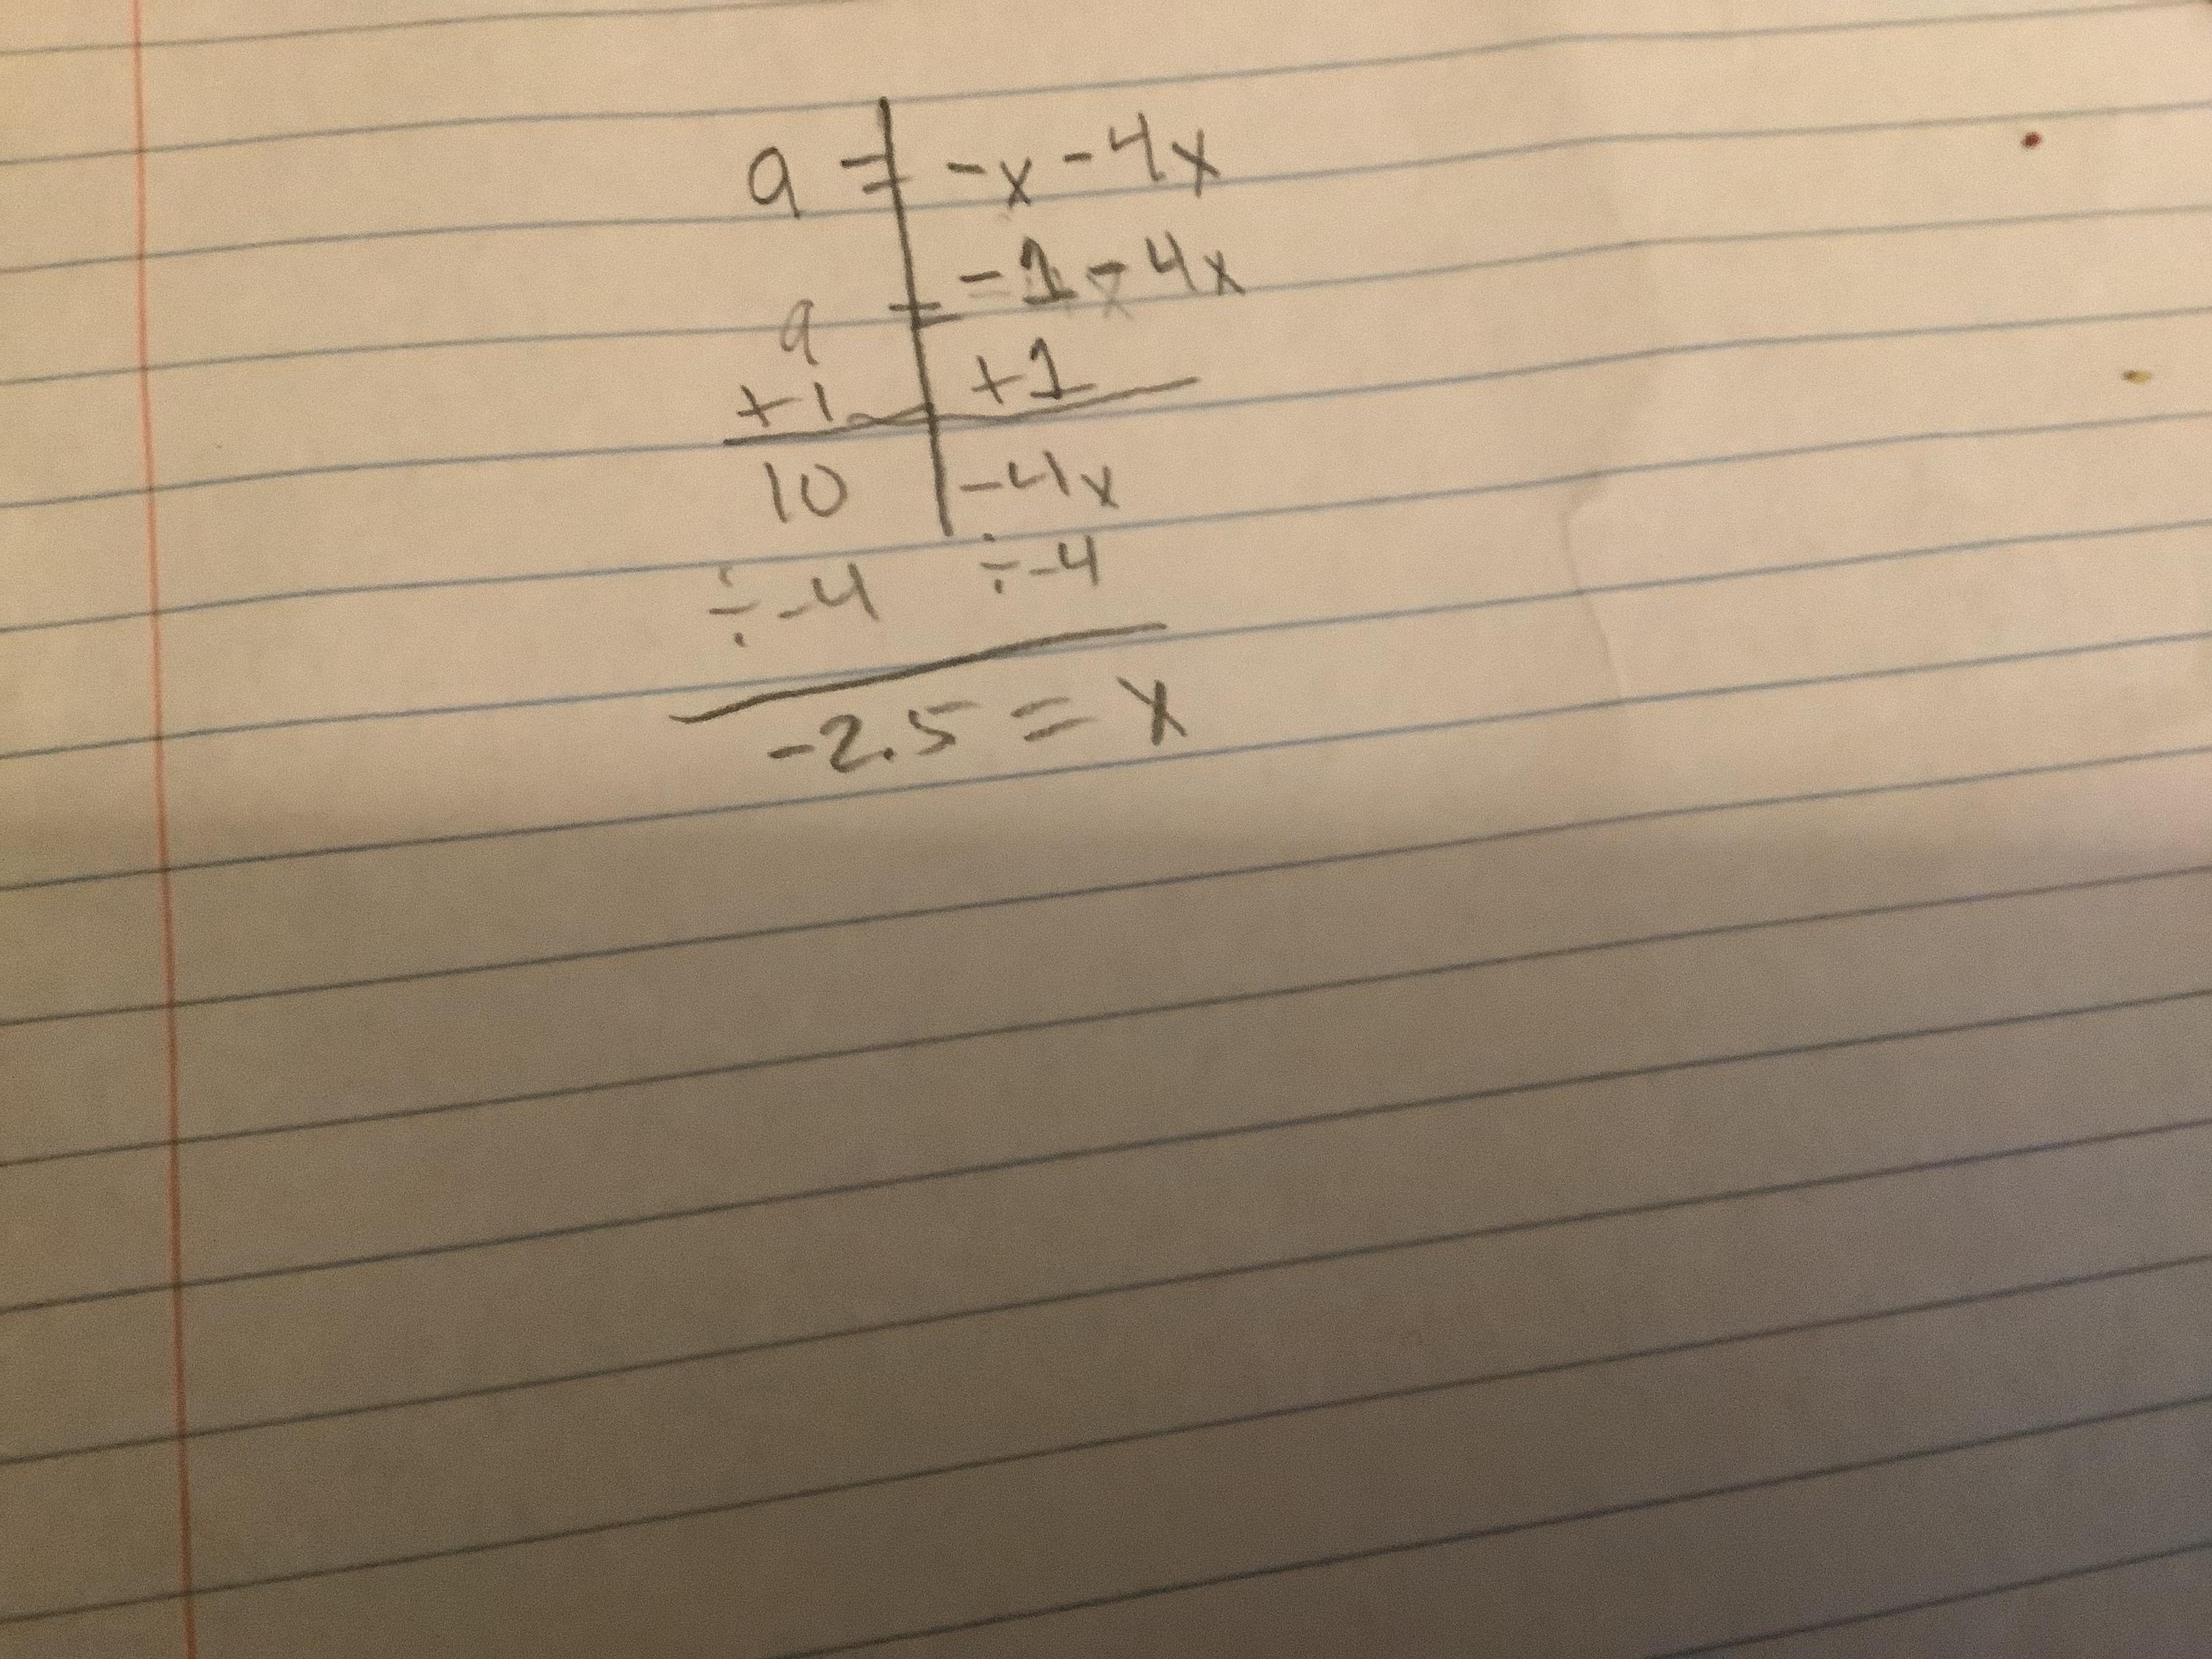 9 = -x - 4x
9 = -1 - 4x
+1 +1
10 -4x
÷-4 ÷-4
-2.5 = x